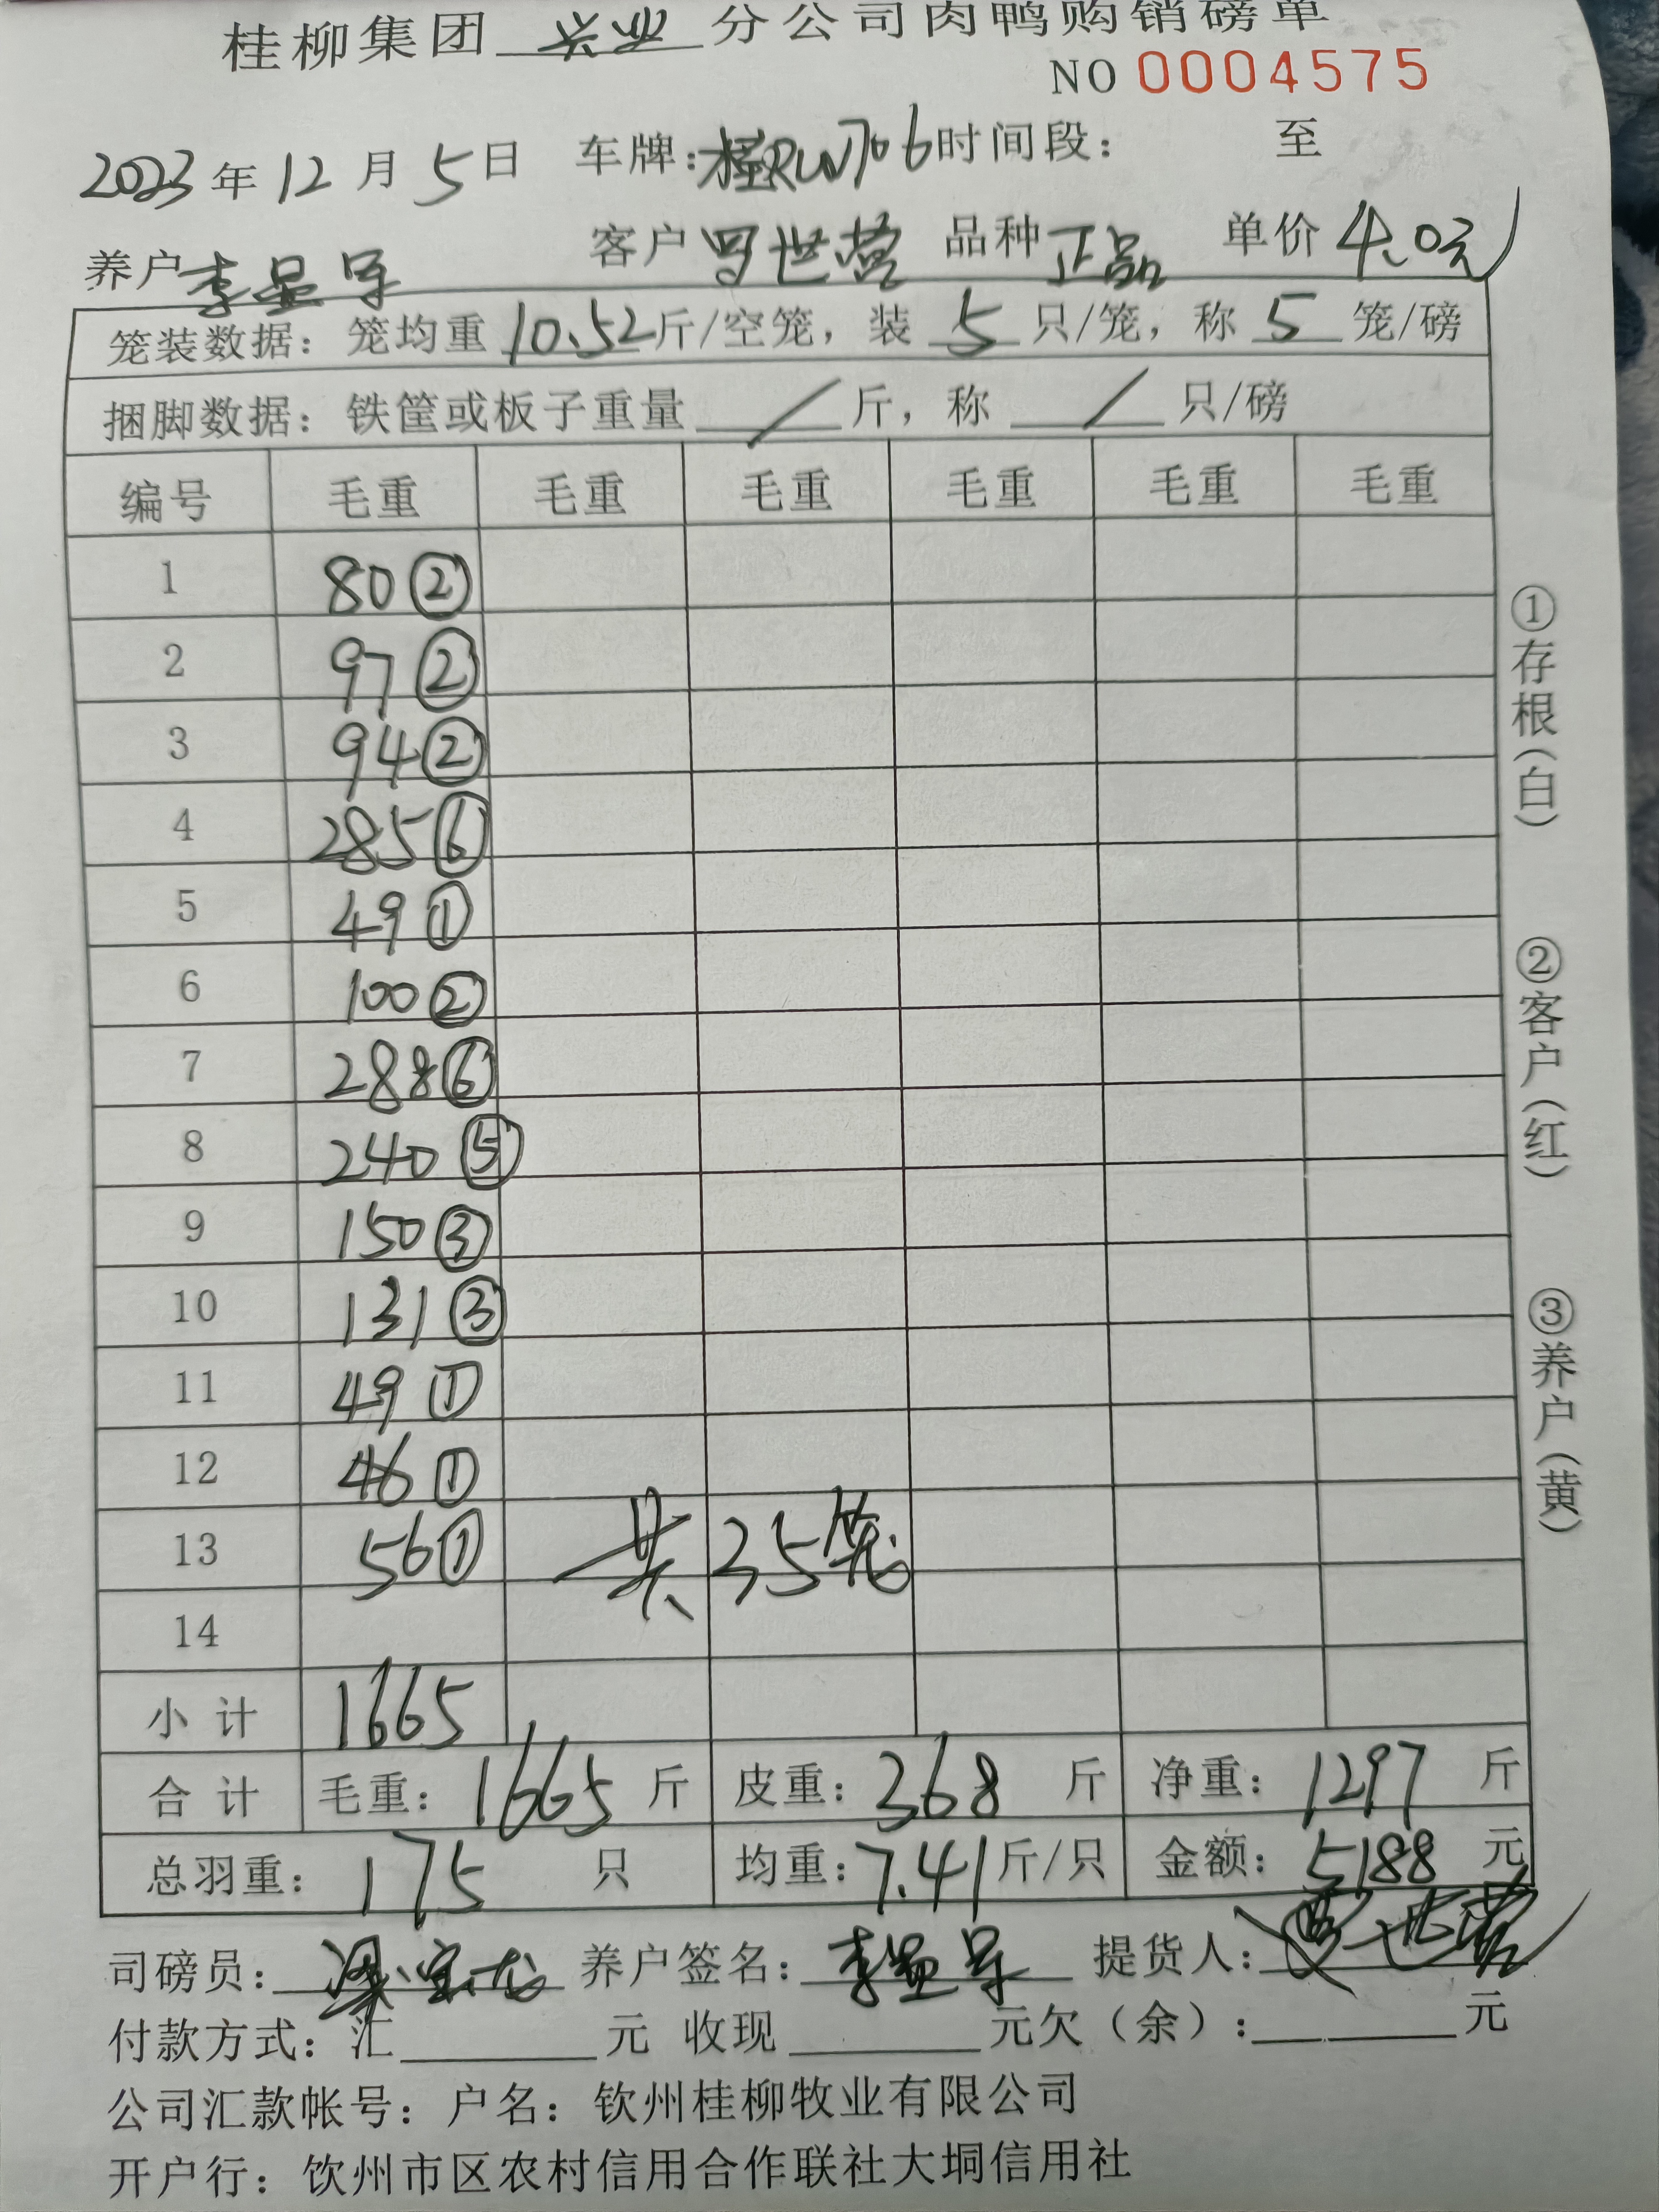 桂柳集团 兴业 分公司肉鸭购销磅单
NO 0004575
2023年12月5日 车牌:桂RUN706 时间段: 至
养户 李显导 客户 罗世营 品种 正品 单价 4.0元
笼装数据: 笼均重 10.52 斤/空笼, 装 5 只/笼, 称 5 笼/磅
捆脚数据: 铁筐或板子重量 / 斤, 称 / 只/磅
编号 毛重 毛重 毛重 毛重 毛重 毛重
1 80 ②
2 97 ②
3 94 ②
4 285 ⑥
5 49 ①
6 100 ②
7 288 ⑥
8 240 ⑤
9 150 ③
10 131 ③
11 49 ①
12 46 ①
13 56 ① 共35笼
14
小计 1665
合计 毛重: 1665 斤 皮重: 368 斤 净重: 1297 斤
总羽重: 175 只 均重: 7.41 斤/只 金额: 5188 元
司磅员: 养户签名: 李显导 提货人:
付款方式: 汇 元 收现 元欠(余): 元
公司汇款帐号: 户名: 钦州桂柳牧业有限公司
开户行: 钦州市区农村信用合作联社大垌信用社
①存根(白)
②客户(红)
③养户(黄)